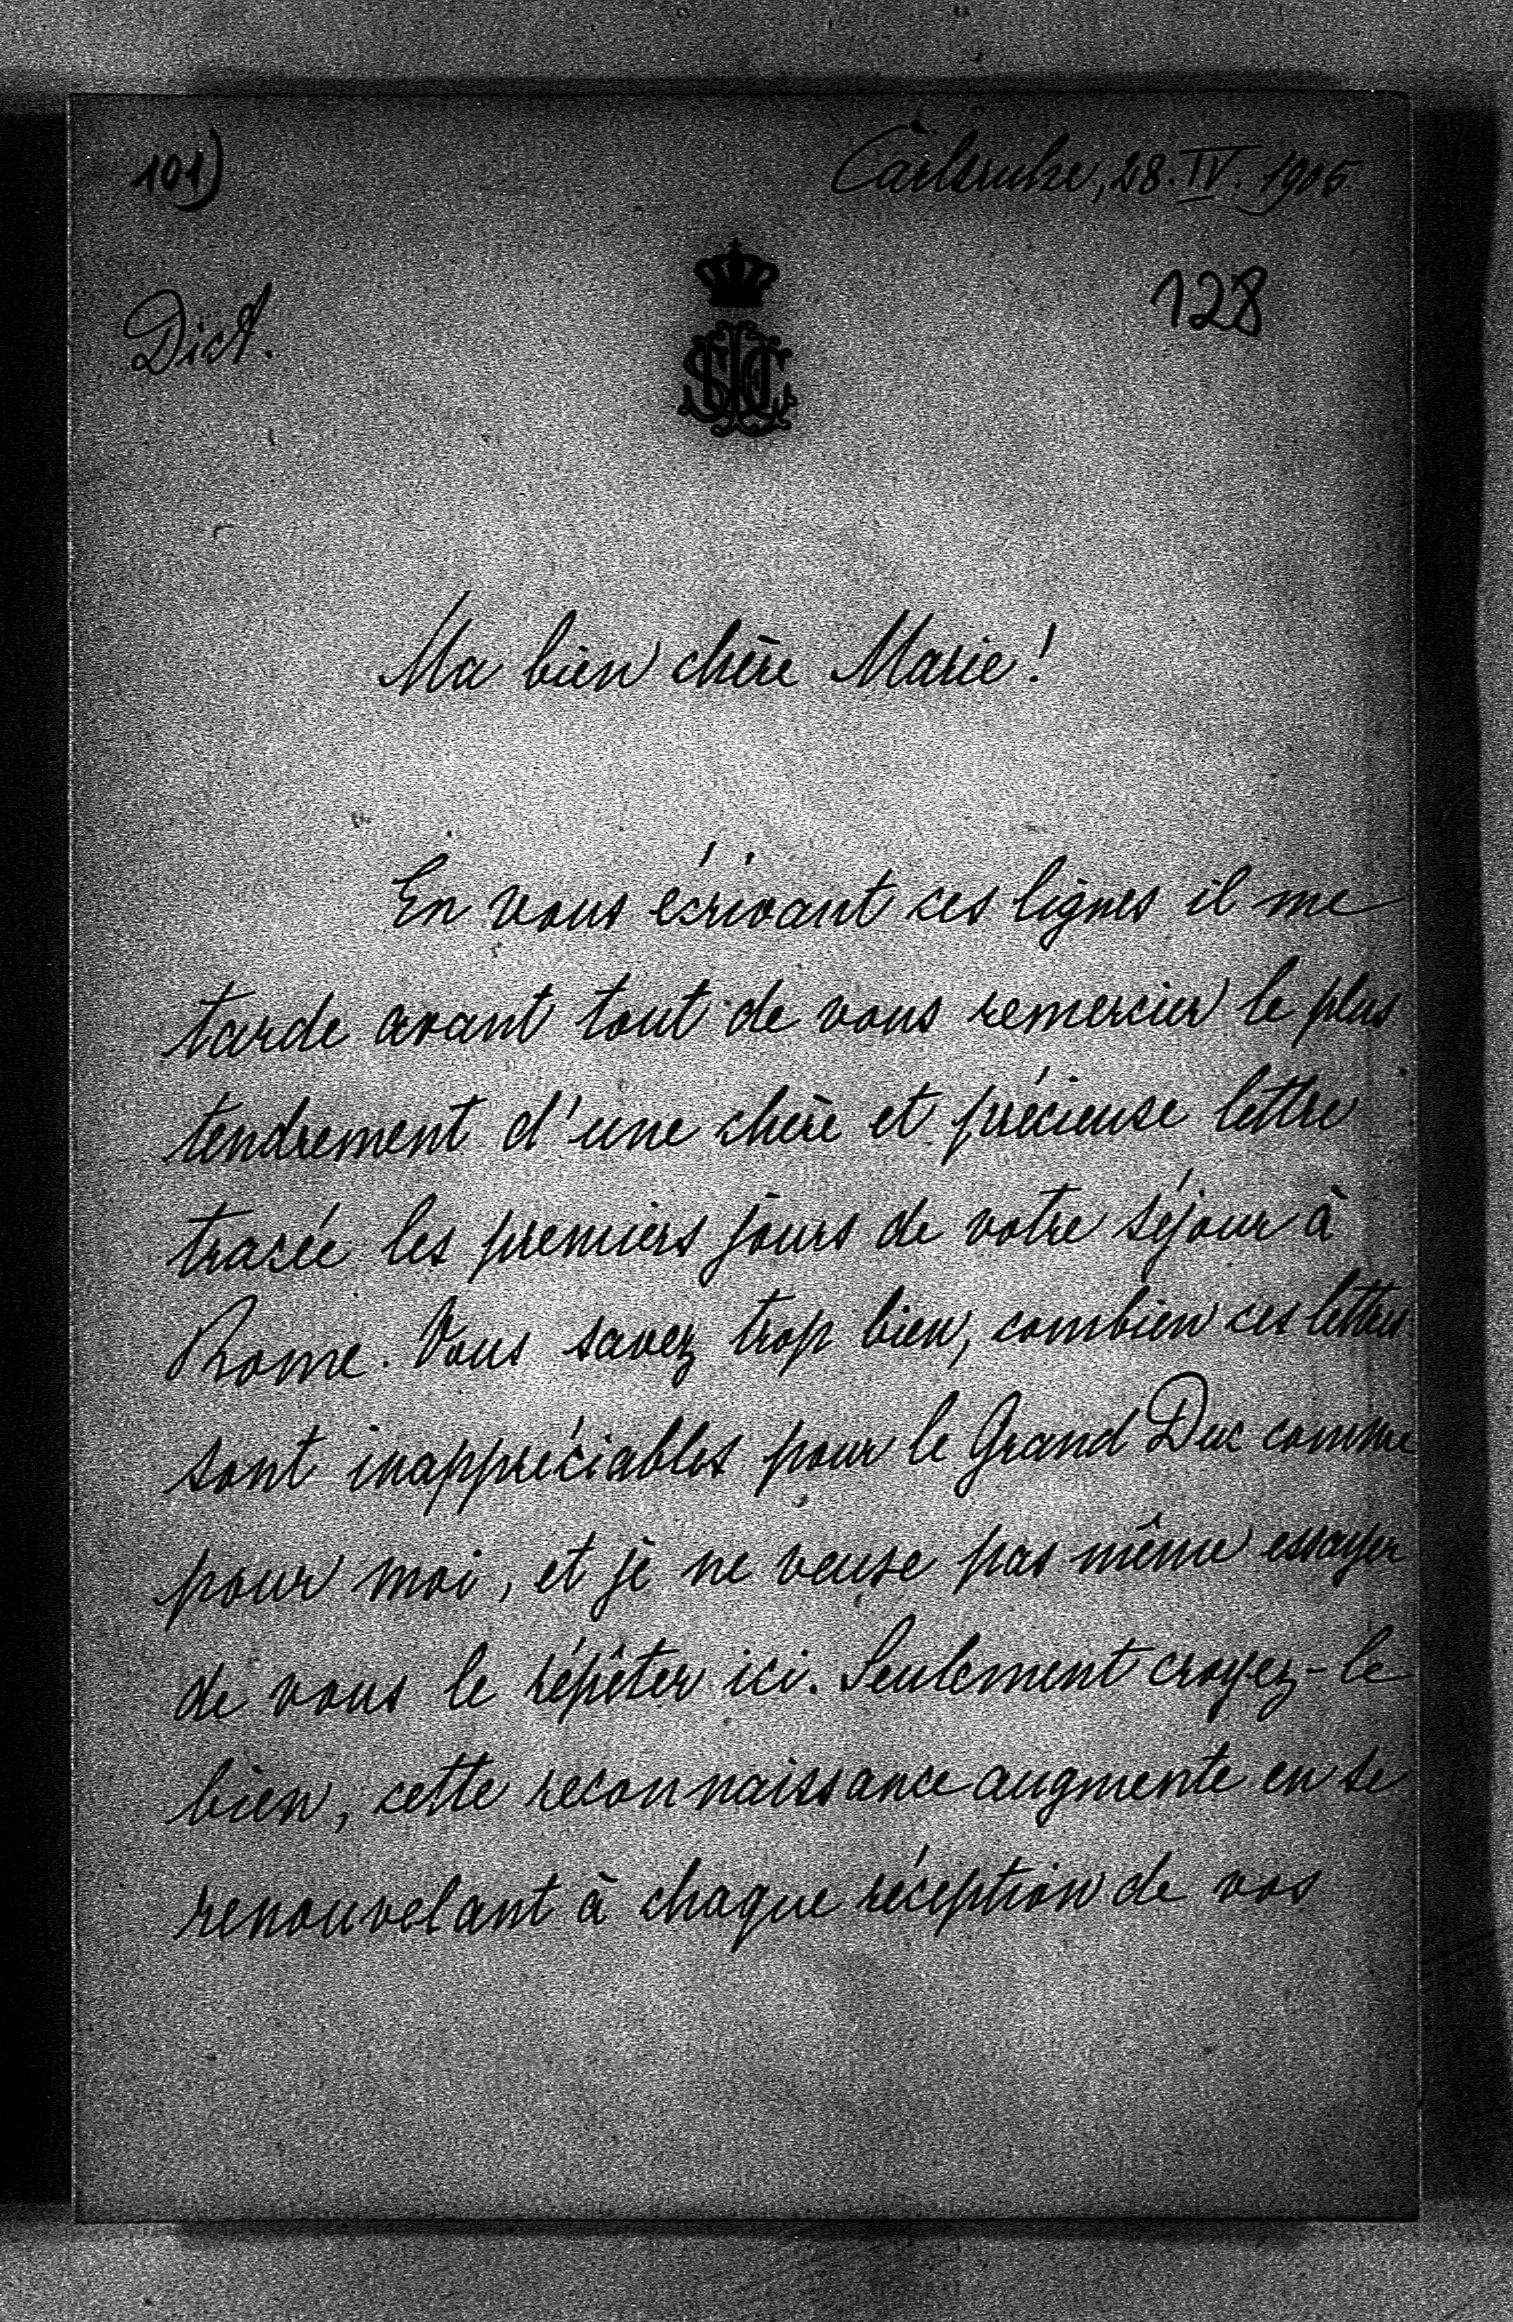 101)
Carlsruhe, 28. IV. 1905
128
Dict.
Ma bien chère Marie!
En vous écrivant ces lignes il me
tarde avant tout de vous remercier le plus
tendrement d'une chère et précieuse lettre
tracée les premiers jours de votre séjour à
Rome. Vous savez trop bien, combien ces lettres
sont inappréciables pour le Grand Duc comme
pour moi, et je ne veuxe pas même essayer
de vous le répêter ici. Seulement croyez-le
bien, cette reconnaissance augmente en se
renouvelant à chaque réception de vos